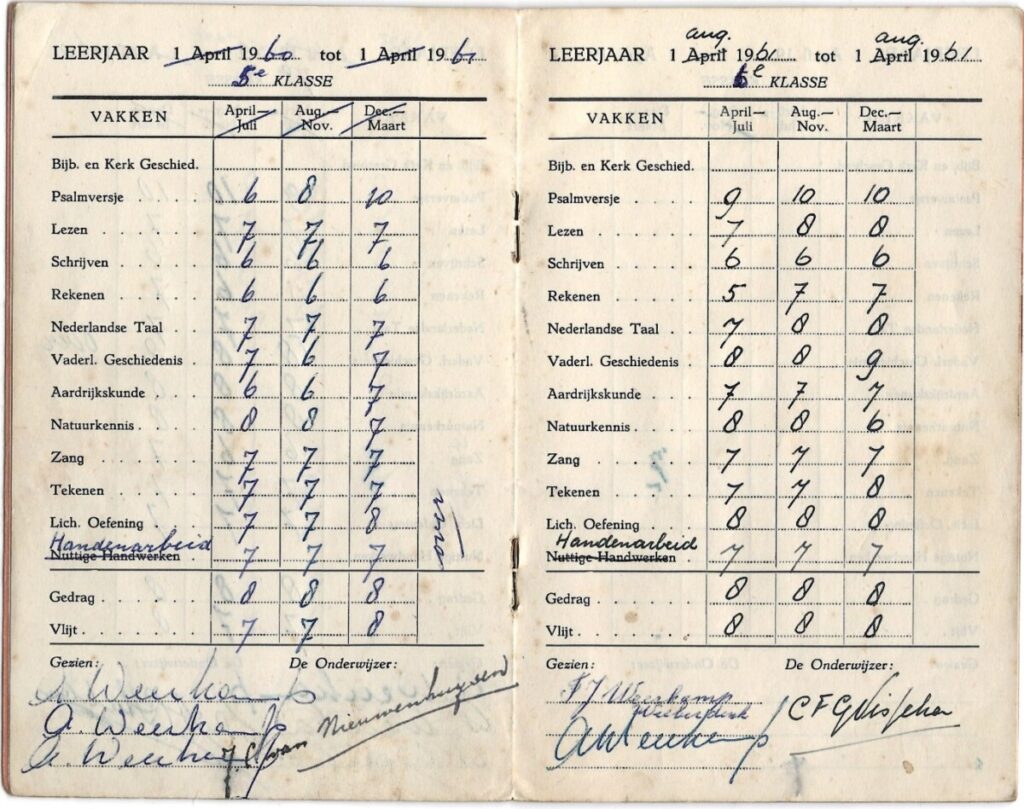 LEERJAAR 1 April 1960 tot 1 April 1961
5e KLASSE
VAKKEN April—Juli Aug.—Nov. Dec.—Maart
Bijb. en Kerk Geschied.
Psalmversje 6 8 10
Lezen 7 7 7
Schrijven 6 6 6
Rekenen 6 6 6
Nederlandse Taal 7 7 7
Vaderl. Geschiedenis 7 6 7
Aardrijkskunde 6 6 7
Natuurkennis 8 8 7
Zang 7 7 7
Tekenen 7 7 7
Lich. Oefening 7 7 8
Handenarbeid
Nuttige Handwerken 7 7 7
Gedrag 8 8 8
Vlijt 7 7 8
Gezien: De Onderwijzer:
A. Weerkamp
A. Weerkamp
A. Weerkamp
van Nieuwenhuyzen
aug. aug.
LEERJAAR 1 April 1961 tot 1 April 1961
6e KLASSE
VAKKEN April—Juli Aug.—Nov. Dec.—Maart
Bijb. en Kerk Geschied.
Psalmversje 9 10 10
Lezen 7 8 8
Schrijven 6 6 6
Rekenen 5 7 7
Nederlandse Taal 7 8 8
Vaderl. Geschiedenis 8 8 9
Aardrijkskunde 7 7 7
Natuurkennis 8 8 6
Zang 7 7 7
Tekenen 7 7 8
Lich. Oefening 8 8 8
Handenarbeid
Nuttige Handwerken 7 7 7
Gedrag 8 8 8
Vlijt 8 8 8
Gezien: De Onderwijzer:
Weerkamp
CFG Visscher
AWeerkamp